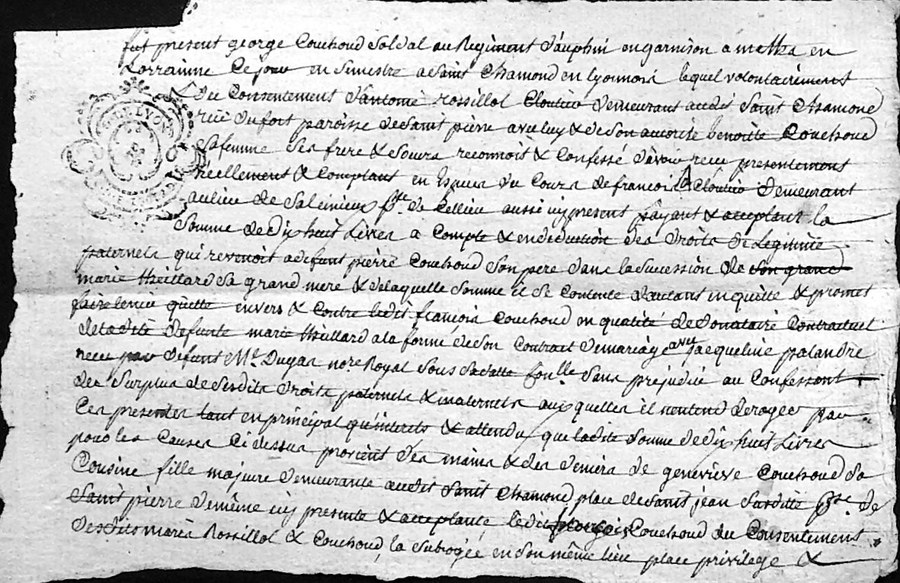 fut present george Couchoud Soldat au Regiment Dauphin en garnison a mettz en
Lorrainne Ce jour en semestre a Saint Chamond en Lyonnois lequel volontairement
Du Consentement d'antoine rossillol Cloutier demeurant audit Saint Chamond
rue Dufort paroisse de Saint pierre avec luy & de Son autorité benoitte Couchoud
Sa femme Ses frere & Soeurs reconnoit & Confesse d'avoir receu presentement
reellement & Comptant en du Cours de francois Cloutier Demeurant
au lieu de Salemieux psse de Cellieu aussi icy present payant & acceptant la
Somme de Dix huit Livres a Compte & en deduction des Droits de Legitime
paternels qui revenoit a defunt pierre Couchoud Son pere dans la Sucession de Son grand
marie theillard Sa grand mere & de laquelle Somme il Se Contente d'autant en quitte & promet
faire tenir quitte envers & Contre ledit francois Couchoud en qualité de Donataire Contractuel
de ladite defunte marie theillard a la forme de Son Contract de mariage avec jacqueline palandre
receu par defunt Me Dugas nore Royal Sous Sa datte Sans prejudice au Confessant
des Surplus de Sesdits droits paternels & maternels auxquelles il n'entend deroger par
Ces presentes tant en principal qu'interets & attendu que ladite Somme de Dix huit Livres
pour les Causes Ci dessus provient des mains & des deniers de genevieve Couchoud Sa
Cousine fille majeure demeurante audit Saint Chamond place de Saint jean Susdite psse de
Saint pierre de même icy presente & acceptante ledit george Couchoud du Consentement
desdits mariés Rossillol & Couchoud la Subrogée en Son même lieu place privilege &